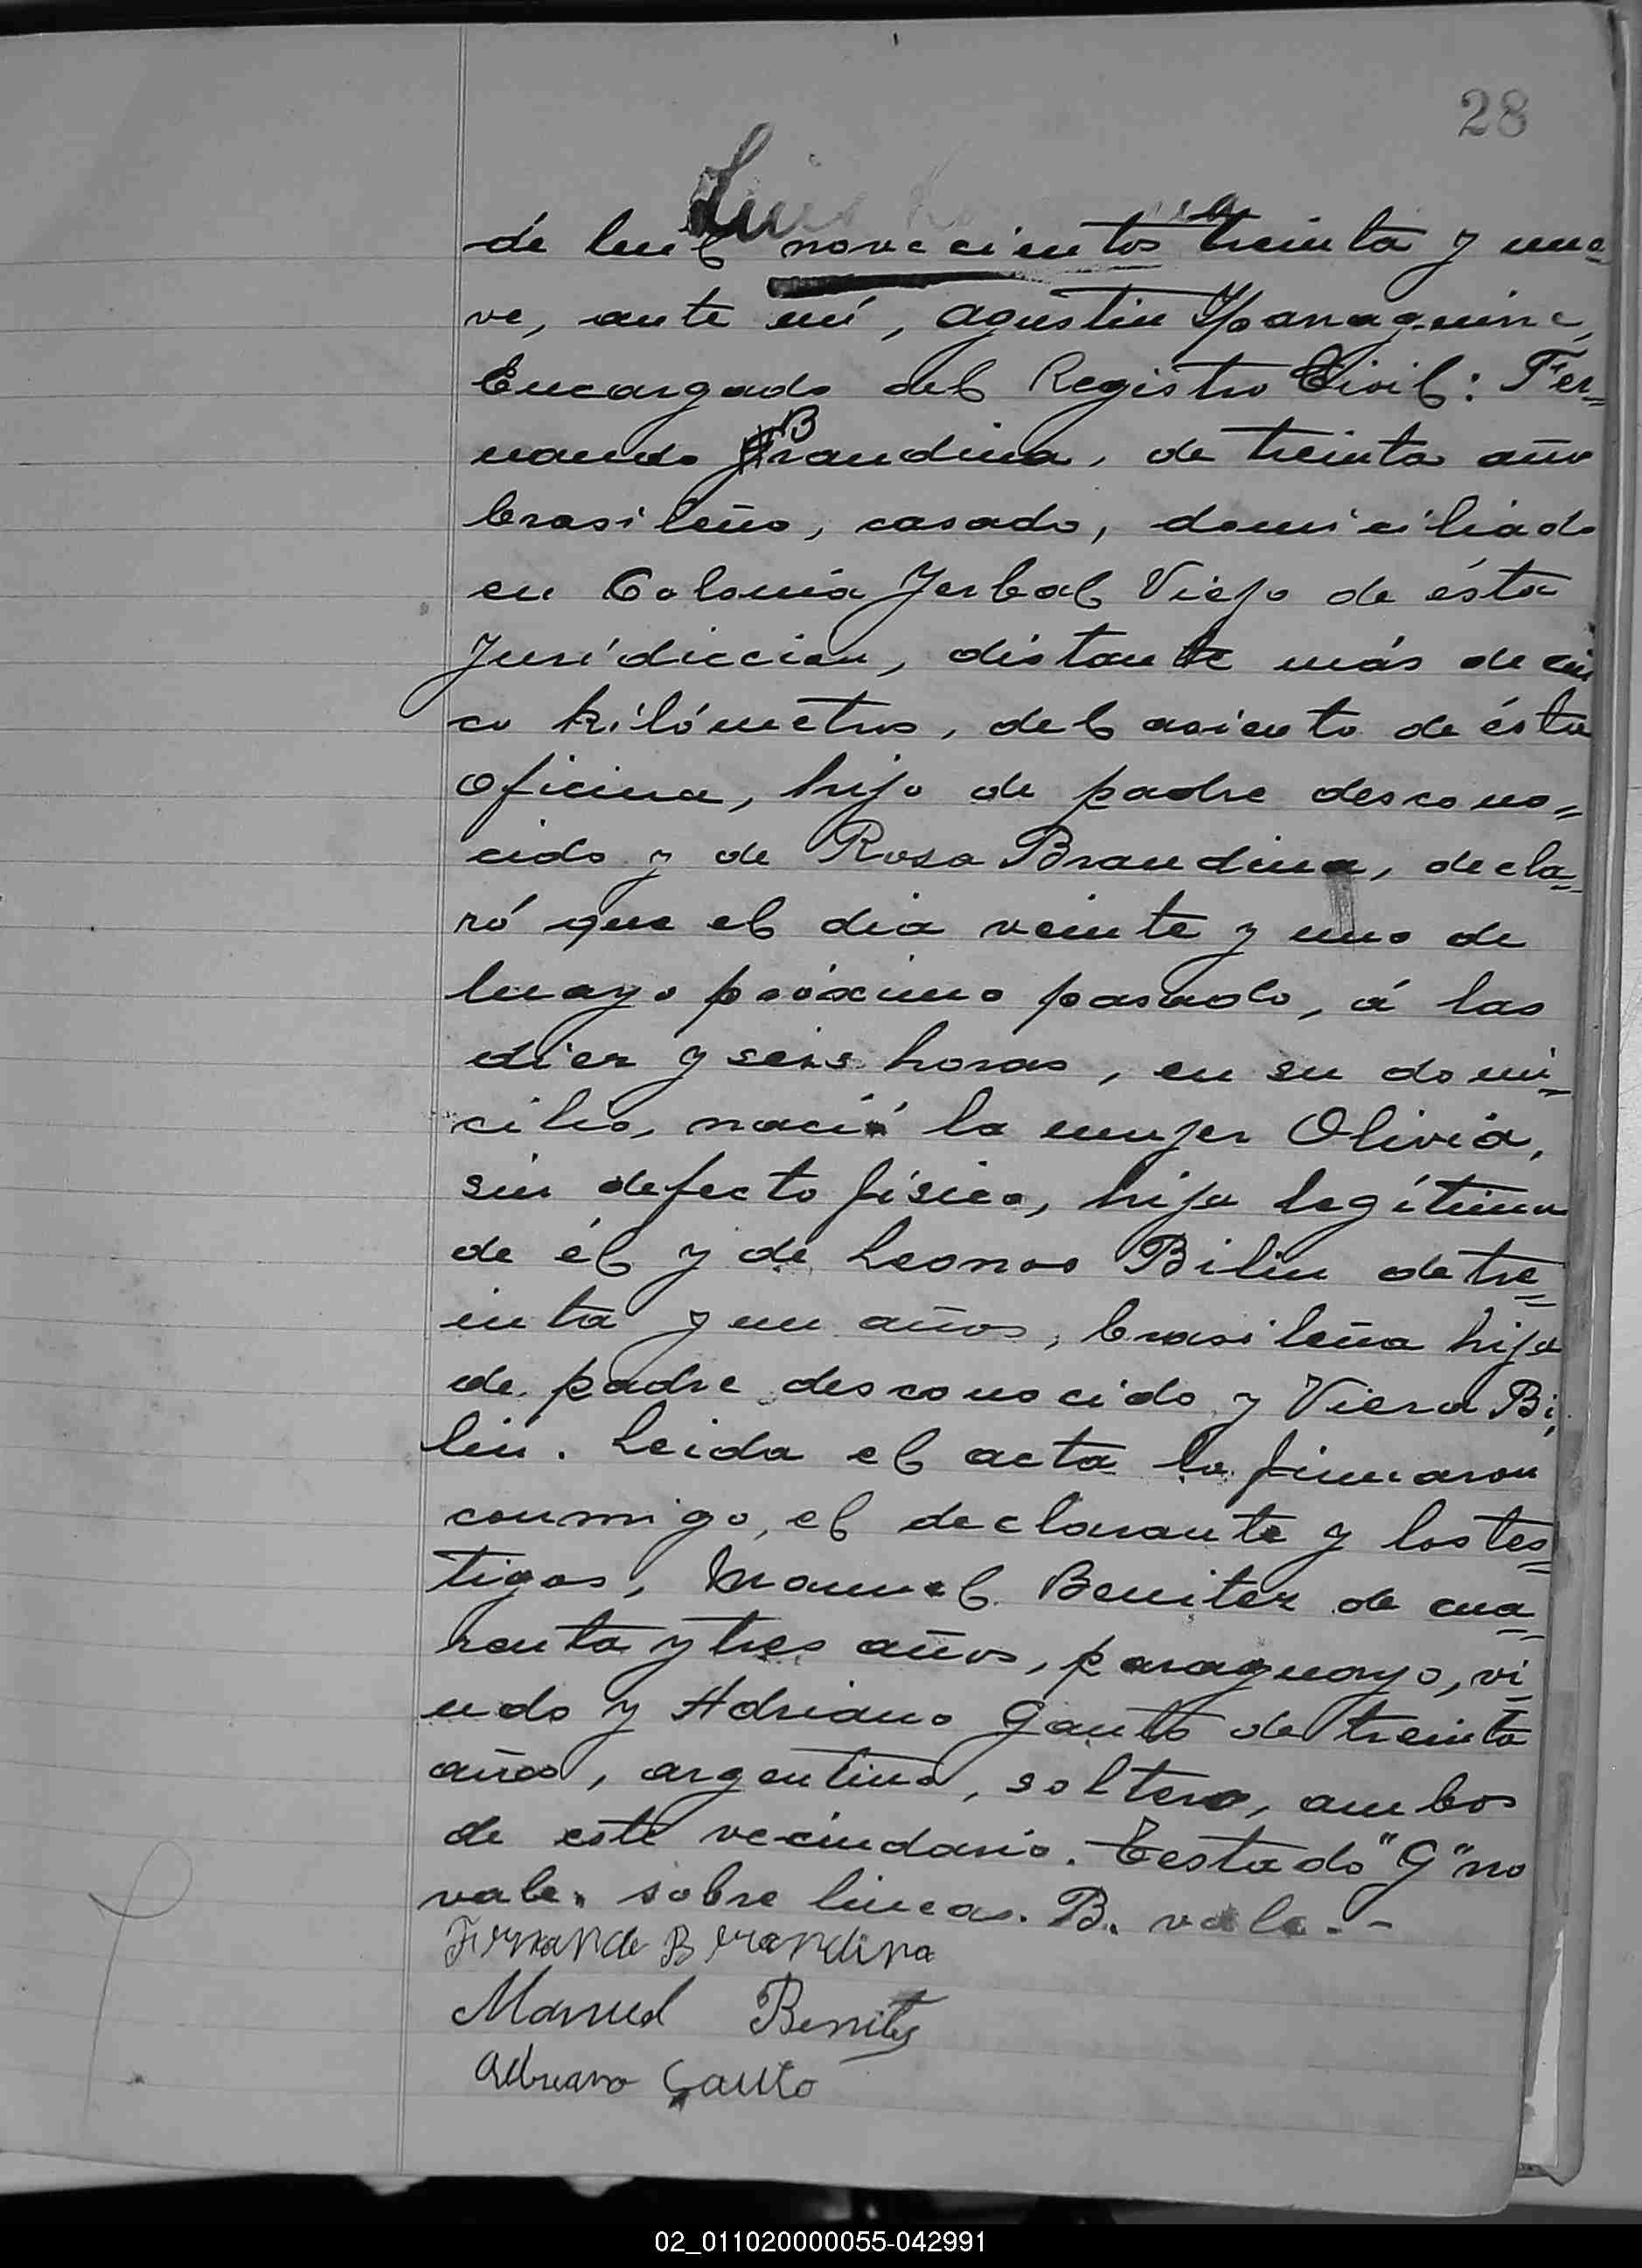 28
Luis
de mil novecientos treinta y nue=
ve, ante mí, Agustin
Encargado del Registro Civil: Fer=
B
nando Grandina, de treinta años
brasileño, casado, domiciliado
en Colonia Yerbal Viejo de ésta
Jurídiccion, distante más de cin
co kilómetros, del asiento de ésta
Oficina, hijo de padre descono=
cido y de Rosa Brandina, decla=
ró que el dia veinte y uno de
Mayo próximo pasado, á las
diez y seis horas, en su domi=
cilio, nació la mujer Olivia,
sin defecto físico, hija legítima
de él y de Leonor Bilin de tre=
inta y un años, brasileña hija
de padre desconocido y Viera Bi=
lin. Leida el acta la firmaron
conmigo, el declarante y los tes=
tigos, Manuel Benitez de cua=
renta y tres años, paraguayo, vi=
udo y Adriano Gauto de treinta
años, argentino, soltero, ambos
de este vecindario. Testado "G" no
vale. sobre lineas. B. vale.-
Fernande Brandina
Manuel Benitez
Adriano Gauto
02_011020000055-042991